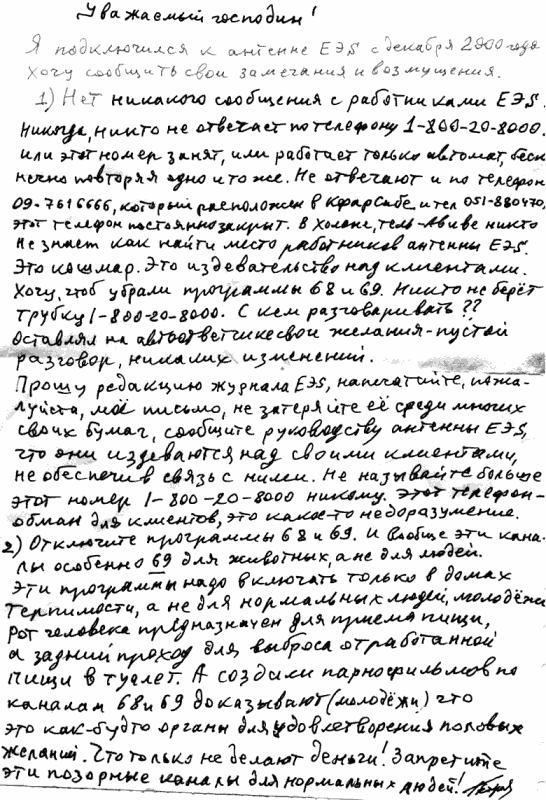 Уважаемый господин!
Я подключился к антенне ЕЭS с декабря 2000 года
Хочу сообщить свои замечания и возмущения.
1) Нет никакого сообщения с работниками ЕЭS.
Никогда, никто не отвечает по телефону 1-800-20-8000.
или этот номер занят, или работает только автомат, беско
нечно повторяя одно и то же. Не отвечают и по телефон
09-7616666, который расположен в Кфар Сабе, и тел 051-880470,
этот телефон постоянно закрыт. В Холоне, Тель-Авиве никто
не знает как найти место работников антенны ЕЭS.
Это кошмар. Это издевательство над клиентами.
Хочу, чтоб убрали программы 68 и 69. Никто не берёт
трубку 1-800-20-8000. С кем разговаривать??
Оставлял на автоответчике свои желания-пустой
разговор, никаких изменений.
Прошу редакцию журнала ЕЭS, напечатайте, пожа-
луйста, моё письмо, не затеряйте её среди многих
своих бумаг, сообщите руководству антенны ЕЭS,
что они издеваются над своими клиентами,
не обеспечив связь с ними. Не называйте больше
этот номер 1-800-20-8000 никому. Этот телефон-
обман для клиентов, это какое-то недоразумение.
2) Отключите программы 68 и 69. И вообще эти кана-
лы особенно 69 для животных, а не для людей.
Эти программы надо включать только в домах
терпимости, а не для нормальных людей, молодёжи
Рот человека предназначен для приема пищи,
а задний проход для выброса отработанной
пищи в туалет. А создили парнофильмов по
каналам 68 и 69 доказывают (молодёжи) что
это как-будто органы для удовлетворения половых
желаний. Что только не делают деньги! Запретите
эти позорные каналы для нормальных людей!